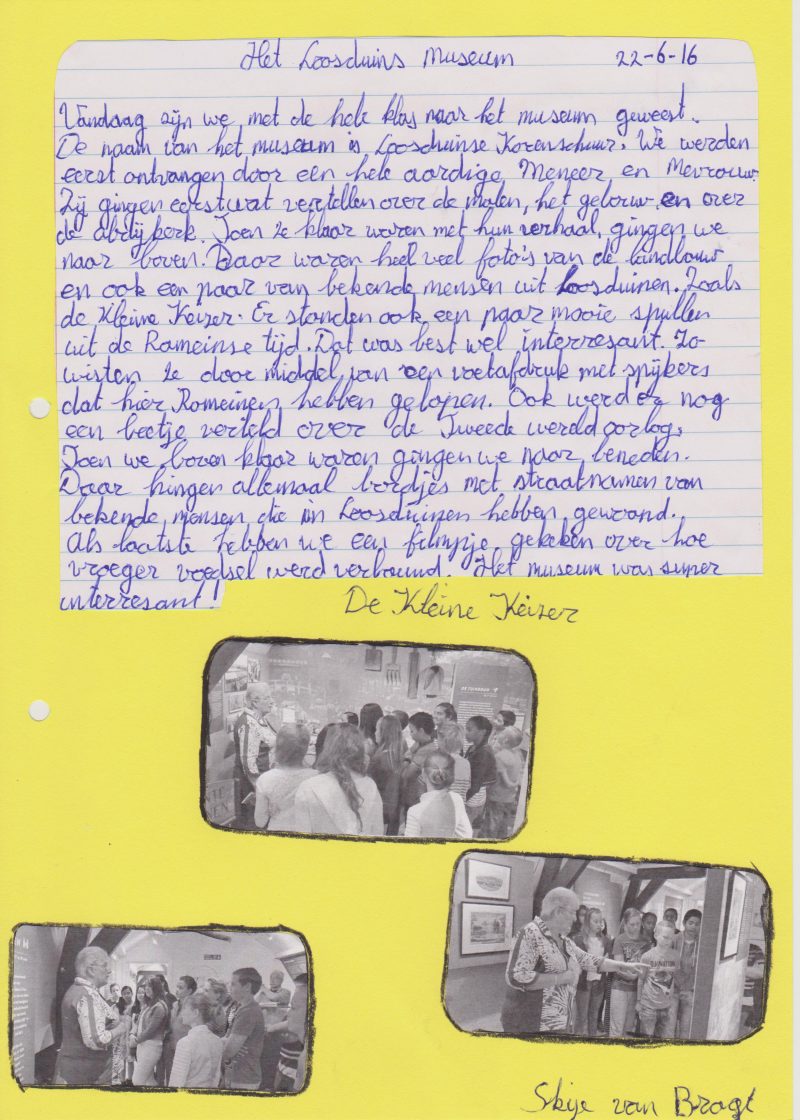 Het Loosduins Museum 22-6-16
Vandaag zijn we met de hele klas naar het museum geweest.
De naam van het museum is Loosduinse Korenschuur. We werden
eerst ontvangen door een hele aardige Meneer en Mevrouw.
Zij gingen eerst wat vertellen over de molen, het gebouw en over
de abdij kerk. Toen ze klaar waren met hun verhaal, gingen we
naar boven. Daar waren heel veel foto's van de landbouw
en ook een paar van bekende mensen uit Loosduinen. Zoals
de Kleine Keizer. Er stonden ook een paar mooie spullen
uit de Romeinse tijd. Dat was best wel interresant. Zo
wisten ze door middel van een voetafdruk met spijkers
dat hier Romeinen hebben gelopen. Ook werd er nog
een beetje verteld over de Tweede wereld oorlog.
Toen we boven klaar waren gingen we naar beneden.
Daar hingen allemaal bordjes met straatnamen van
bekende mensen die in Loosduinen hebben gewoond.
Als laatste hebben we een filmpje gekeken over hoe
vroeger voedsel werd verbouwd. Het museum was super
interresant!
De Kleine Keizer
DE TUINBOUW
van Bragt